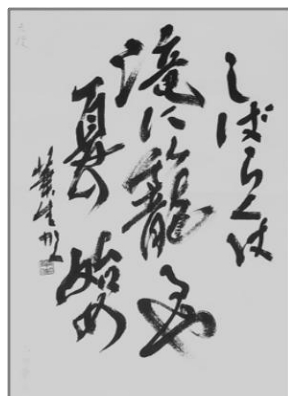 しばらくは
滝に籠るや
夏の始め